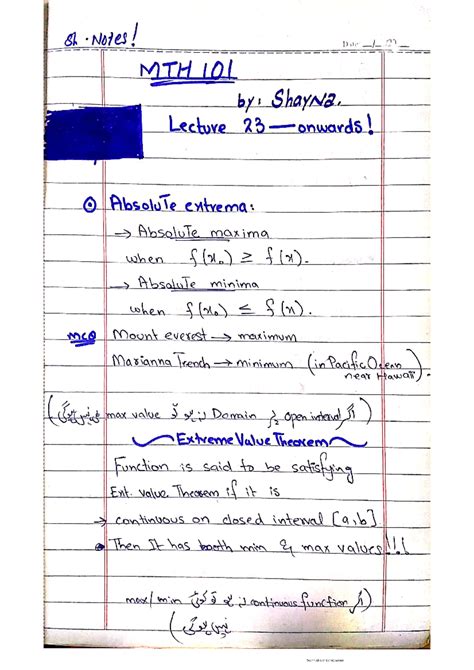 Sh. Notes!
MTH 101
by: Shayna.
Lecture 23 — onwards!
Absolute extrema:
→ Absolute maxima
when f(x₀) ≥ f(x).
→ Absolute minima
when f(x₀) ≤ f(x).
MCQ Mount everest → maximum
Marianna Trench → minimum (in Pacific Ocean
near Hawaii).
(اگر open interval ہو Domain تو max value نہیں ہوگی)
Extreme Value Theorem
Function is said to be satisfying
Ext. value Theorem if it is
→ continuous on closed interval [a,b]
• Then It has both min & max values!!!
(اگر continuous function نہ ہو تو کوئی max/min
نہیں ہوگی)